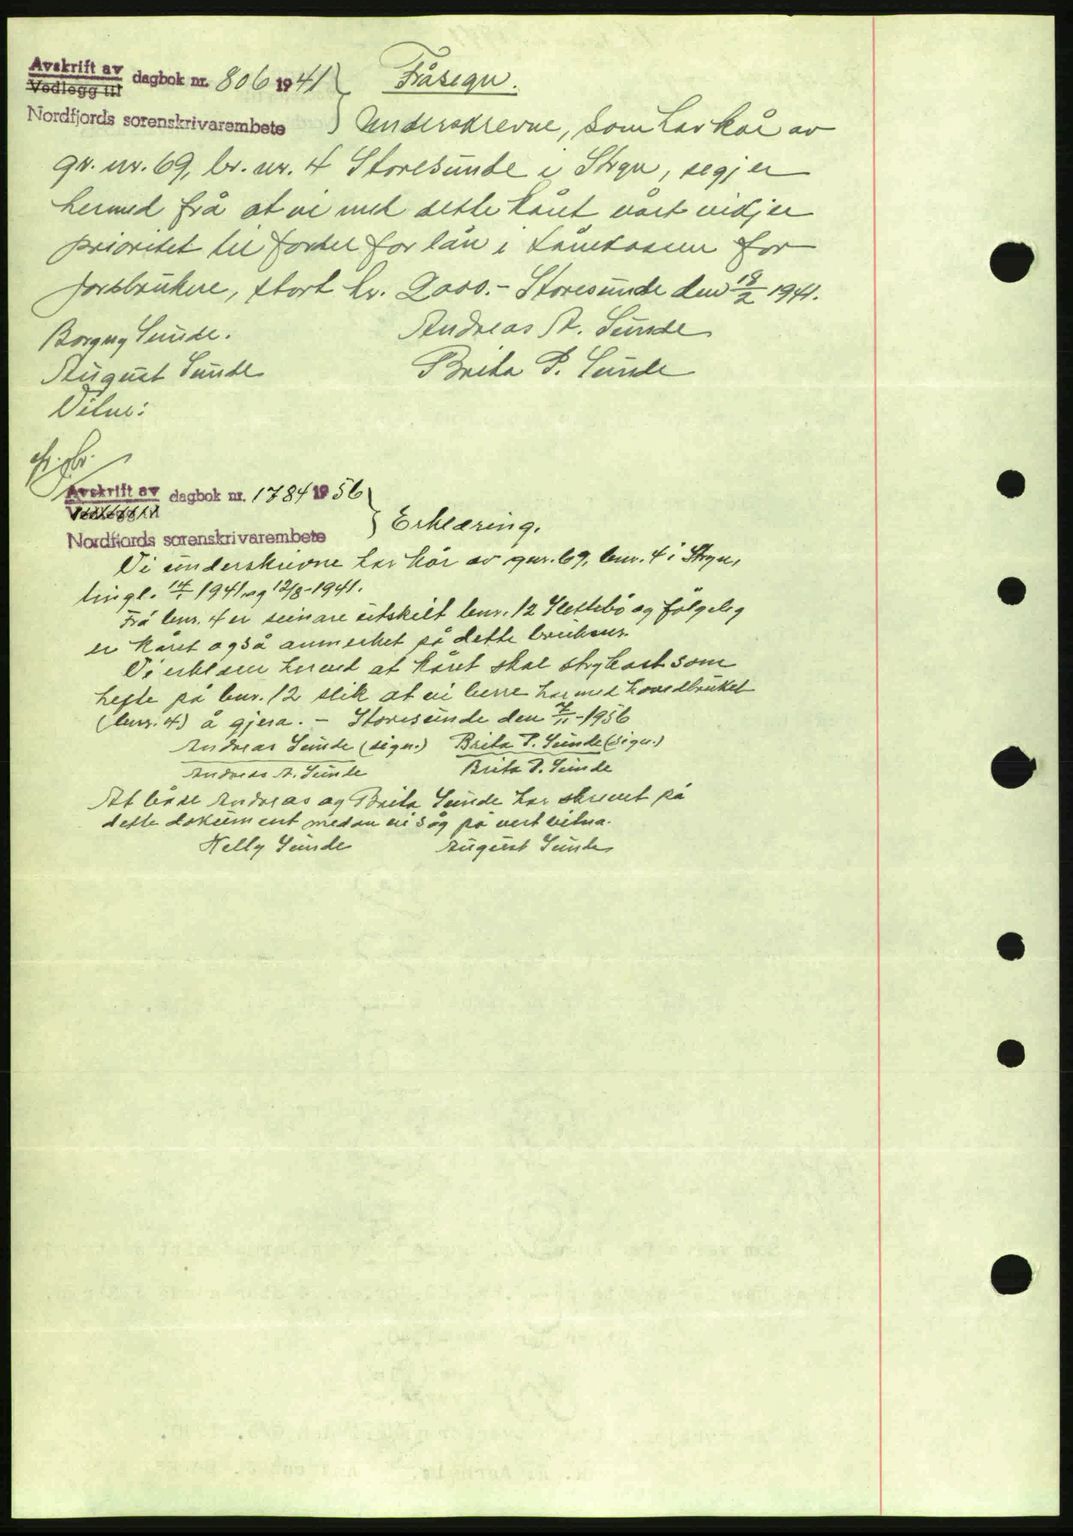 Avskrift av
Vedlegg til dagbok nr. 806 1941
Nordfjords sorenskrivarembete
Fråsegn.
Underskrevne, som har kår av
gr. nr. 69, br. nr. 4 Storesunde i Stryn, segjer
hermed frå at vi med dette kåret vårt vidjer
prioritet til fordel for lån i Lånekassen for
jordbrukere, stort kr. 2000.- Storesunde den 18/2 1941.
Borgny Sunde. Andreas A. Sunde
August Sunde Brita P. Sunde
Vitne:
Avskrift av
Vedlegg til dagbok nr. 1784 1956
Nordfjords sorenskrivarembete
Erklæring.
Vi underskrivne har kår av gnr. 69, bnr. 4 i Stryn,
tingl. 14/1 1941 og 12/8-1941.
Frå bnr. 4 er seinare utskilt bnr. 12 Klettebö og fölgeleg
er kåret også anmerket på dette bruksnr.
Vi erklærer herved at kåret skal strykast som
hefte på bnr. 12 slik at vi berre har med hovedbruket
(bnr. 4) å gjera. - Storesunde den 7/11-1956
Andreas Sunde (sign.) Brita P. Sunde (sign.)
Andreas A. Sunde Brita P. Sunde
At både Andreas og Brita Sunde har skrevet på
dette dokument medan vi såg på vert vitna.
Nelly Sunde August Sunde